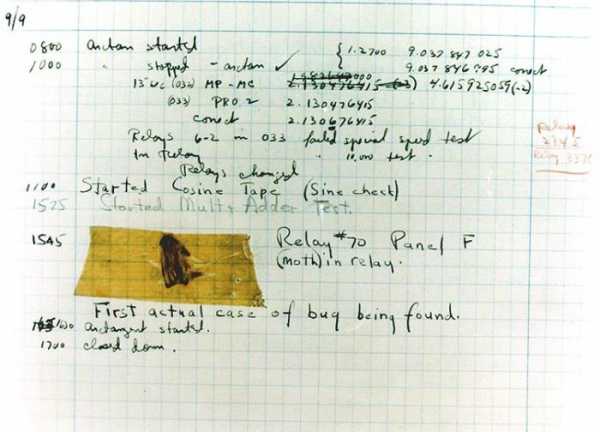 9/9
0800 antan started { 1.2700 9.037 847 025
1000 " stopped - antan ✓ 9.037 846 995 correct
(032) MP - MC 2.130476415 (-3) 4.615925059(-2)
(033) PRO 2 2.130476415
correct 2.130676415
Relays 6-2 in 033 failed special speed test
In Relay " 10,000 test .
Relays changed
Relay
2145
Relay 3370
1100 Started Cosine Tape (Sine check)
1525 Started Mult+Adder Test.
1545 Relay #70 Panel F
(moth) in relay.
First actual case of bug being found.
1630 antangent started.
1700 closed down.